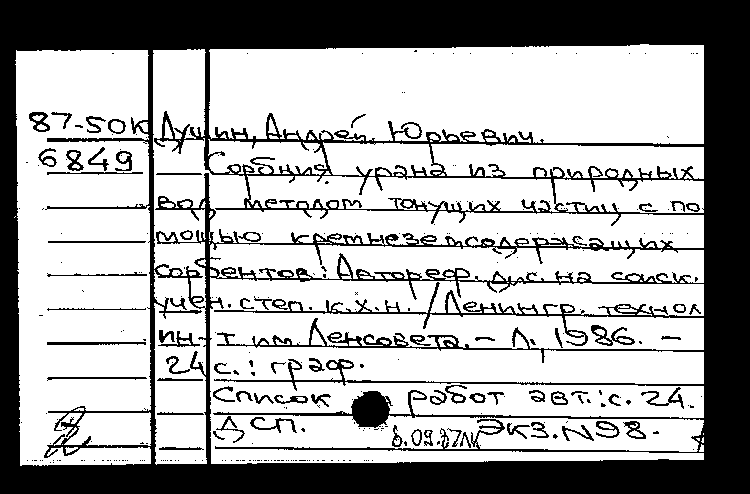 87-50К Душин, Андрей Юрьевич.
6849 Сорбция урана из природных
вод методом тонущих частиц с по
мощью кремнеземсодержащих
сорбентов: Автореф. дис. на соиск.
учен. степ. к.х.н. / Ленингр. технол
ин-т им. Ленсовета. - Л., 1986. -
24 с.: граф.
Список работ авт.: с. 24.
ДСП. 8.09.87 Экз. N98.